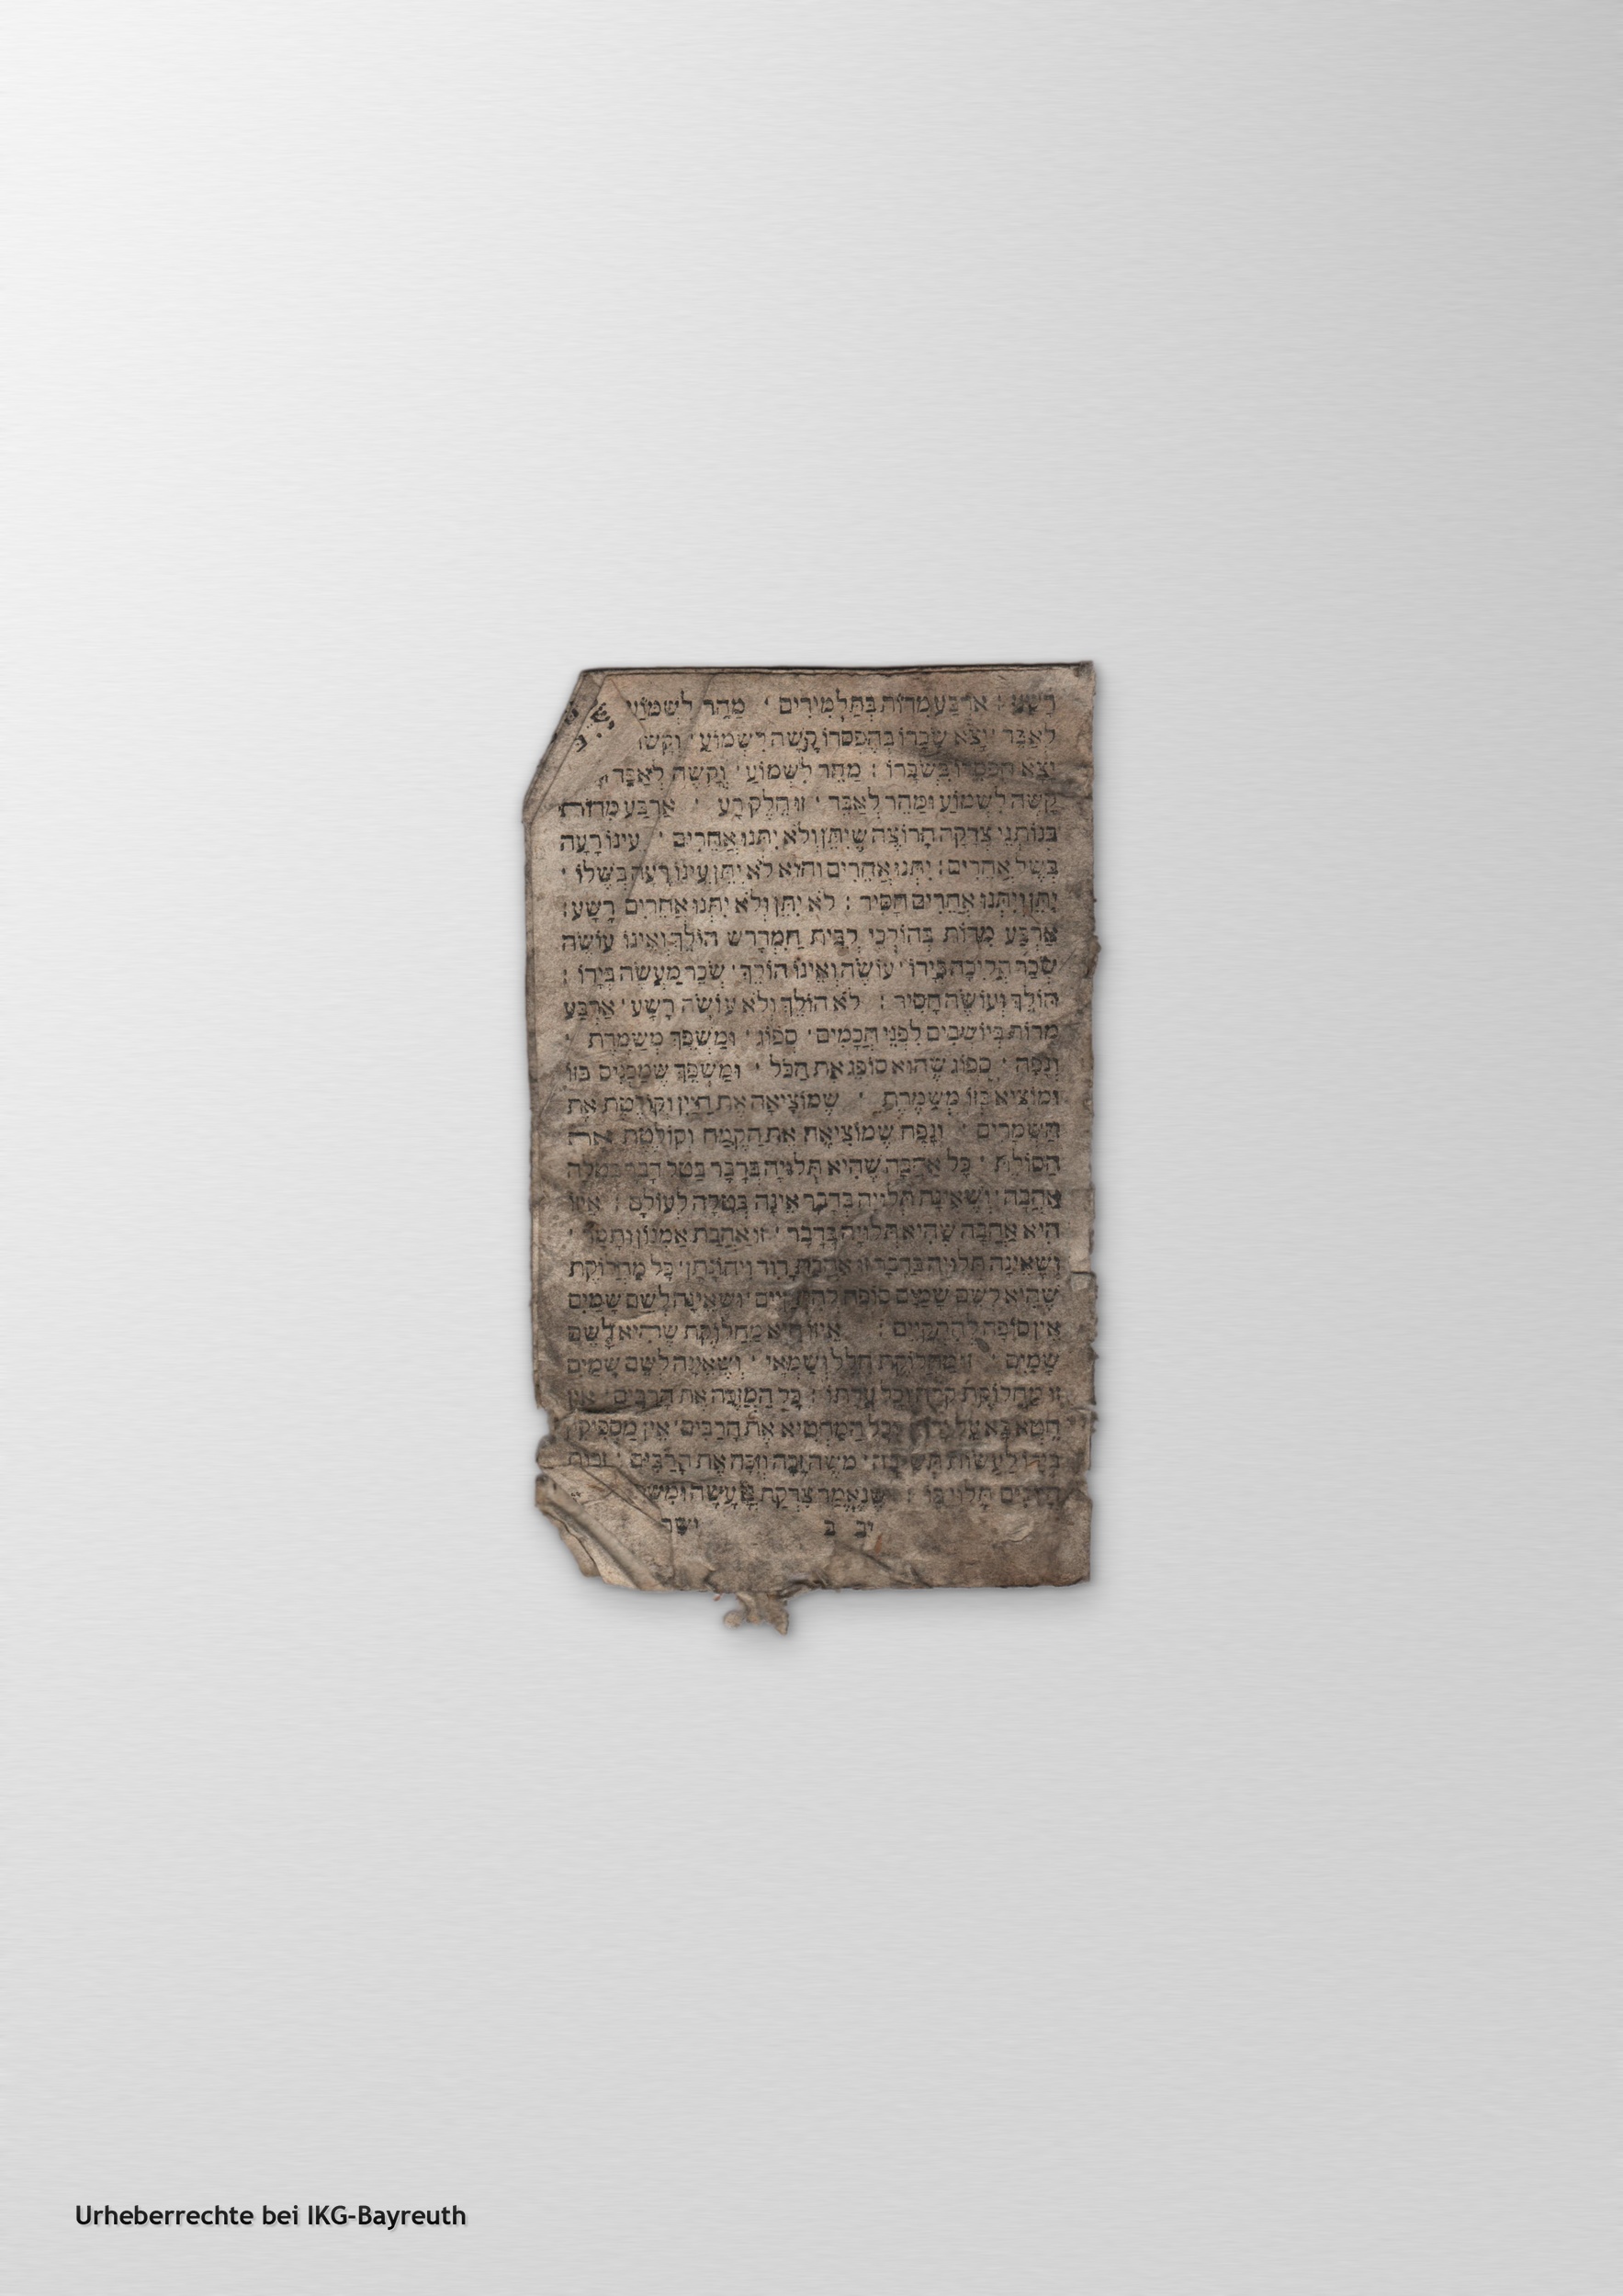 רשע : ארבע מדות בתלמידים ׳ מהר לשמוע
לאבד ׳ יצא שכרו בהפסדו קשה לשמוע ׳ וקשה
יצא הפסדו בשכרו : מהר לשמוע ׳ וקשה לאבד
קשה לשמוע ומהר לאבד ׳ זו חלק רע ׳ ארבע מדות
בנותני צדקה הרוצה שיתן ולא יתנו אחרים ׳ עינו רעה
בשל אחרים : יתנו אחרים והוא לא יתן עינו רעה בשלו ׳
יתן ויתנו אחרים חסיד : לא יתן ולא יתנו אחרים רשע :
ארבע מדות בהולכי לבית המדרש הולך ואינו עושה
שכר הליכה בידו ׳ עושה ואינו הולך ׳ שכר מעשה בידו :
הולך ועושה חסיד : לא הולך ולא עושה רשע ׳ ארבע
מדות ביושבים לפני חכמים ׳ ספוג ׳ ומשפך משמרת ׳
ונפה ׳ ספוג שהוא סופג את הכל ׳ ומשפך שמכניס בזו
ומוציא בזו משמרת ׳ שמוציאה את היין וקולטת את
השמרים ׳ ונפה שמוציאה את הקמח וקולטת את
הסולת ׳ כל אהבה שהיא תלויה בדבר בטל דבר בטלה
אהבה ושאינה תלויה בדבר אינה בטלה לעולם : איזו
היא אהבה שהיא תלויה בדבר ׳ זו אהבת אמנון ותמר ׳
ושאינה תלויה בדבר זו אהבת דוד ויהונתן ׳ כל מחלוקת
שהיא לשם שמים סופה להתקיים ׳ ושאינה לשם שמים
אין סופה להתקיים : איזו היא מחלוקת שהיא לשם
שמים ׳ זו מחלוקת הלל ושמאי ׳ ושאינה לשם שמים
זו מחלוקת קרח וכל עדתו : כל המזכה את הרבים ׳ אין
חטא בא על ידו וכל המחטיא את הרבים ׳ אין מספיקין
בידו לעשות תשובה ׳ משה זכה וזכה את הרבים ׳ זכות
הרבים תלוי בו : שנאמר צדקת יי עשה ומש
יב ב ישר
Urheberrechte bei IKG-Bayreuth